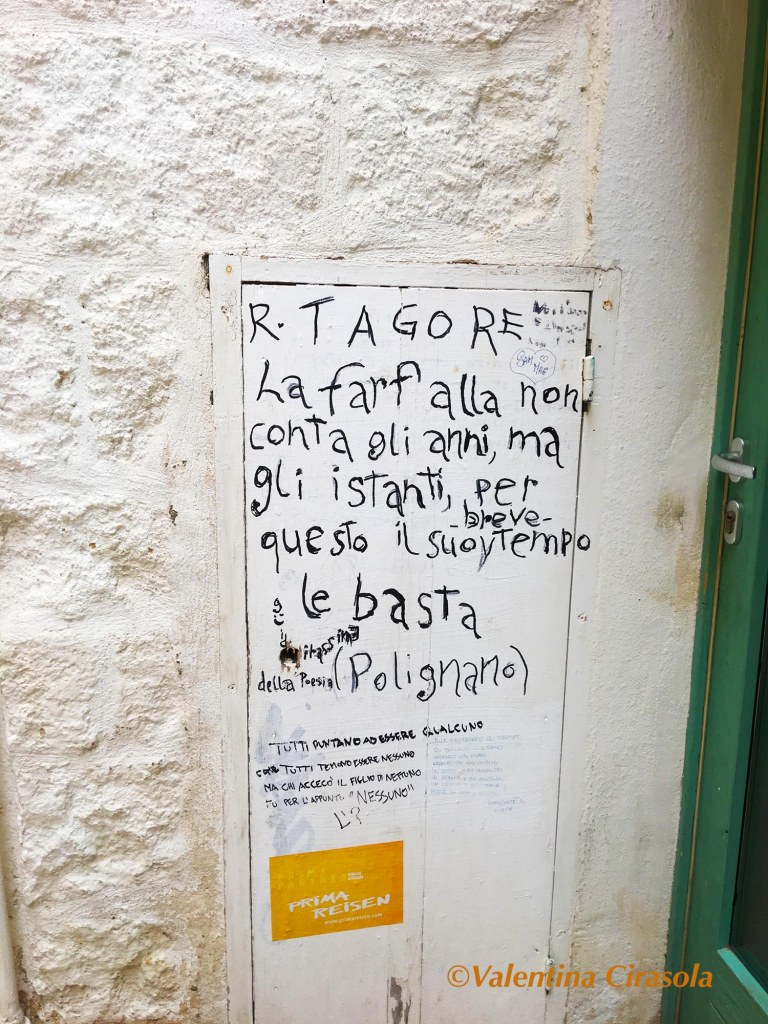 R. TAGORE
La farfalla non
conta gli anni, ma
gli istanti, per
questo il suo breve tempo
le basta
guido
della Poesia (Polignano)
TUTTI PUNTANO AD ESSERE QUALCUNO
COME TUTTI TEMONO ESSERE NESSUNO
MA CHI ACCECÒ IL FIGLIO DI NETTUNO
FU PER L'APPUNTO "NESSUNO"
PRIMA
REISEN
www.primareisen.com
©Valentina Cirasola